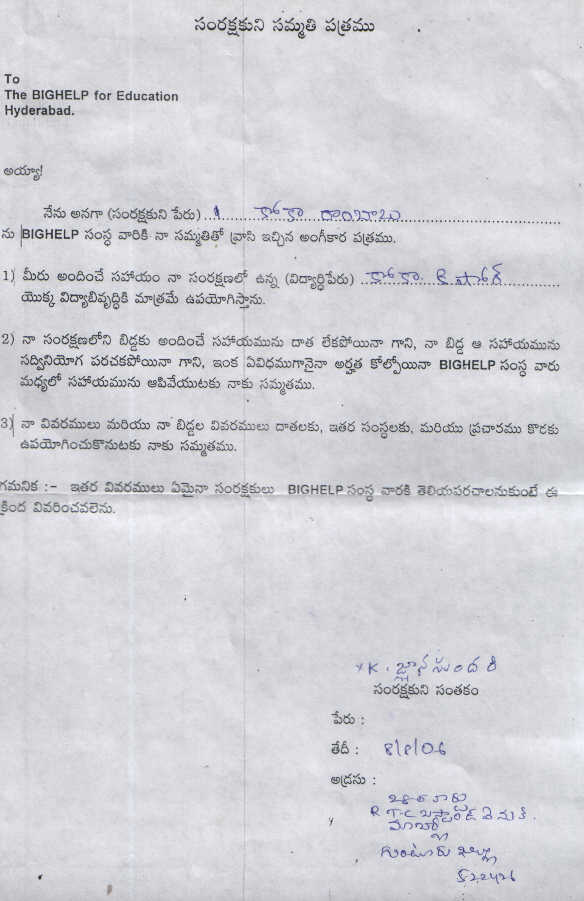 సంరక్షకుని సమ్మతి పత్రము
To
The BIGHELP for Education
Hyderabad.
అయ్యా!
నేను అనగా (సంరక్షకుని పేరు) కోకా రాంబాబు
ను BIGHELP సంస్ధ వారికి నా సమ్మతితో వ్రాసి ఇచ్చిన అంగీకార పత్రము.
1) మీరు అందించే సహాయం నా సంరక్షణలో ఉన్న (విద్యార్ధిపేరు) కోకా. కిషోర్
యొక్క విద్యాభివృద్ధికి మాత్రమే ఉపయోగిస్తాను.
2) నా సంరక్షణలోని బిడ్డకు అందించే సహాయమును దాత లేకపోయినా గాని, నా బిడ్డ ఆ సహాయమును
సద్వినియోగ పరచకపోయినా గాని, ఇంక ఏవిధముగానైనా అర్హత కోల్పోయినా BIGHELP సంస్ధ వారు
మధ్యలో సహాయమును ఆపివేయుటకు నాకు సమ్మతము.
3) నా వివరములు మరియు నా బిడ్డల వివరములు దాతలకు, ఇతర సంస్ధలకు, మరియు ప్రచారము కొరకు
ఉపయోగించుకొనుటకు నాకు సమ్మతము.
గమనిక :- ఇతర వివరములు ఏమైనా సంరక్షకులు BIGHELP సంస్ధ వారకి తెలియపరచాలనుకుంటే ఈ
క్రింద వివరించవలెను.
x K. జ్ఞానసుందరి
సంరక్షకుని సంతకం
పేరు :
తేదీ : 8/9/06
అడ్రసు :
R.T.C బస్టాండ్ వెనుక.
గుంటూరు జిల్లా
522426